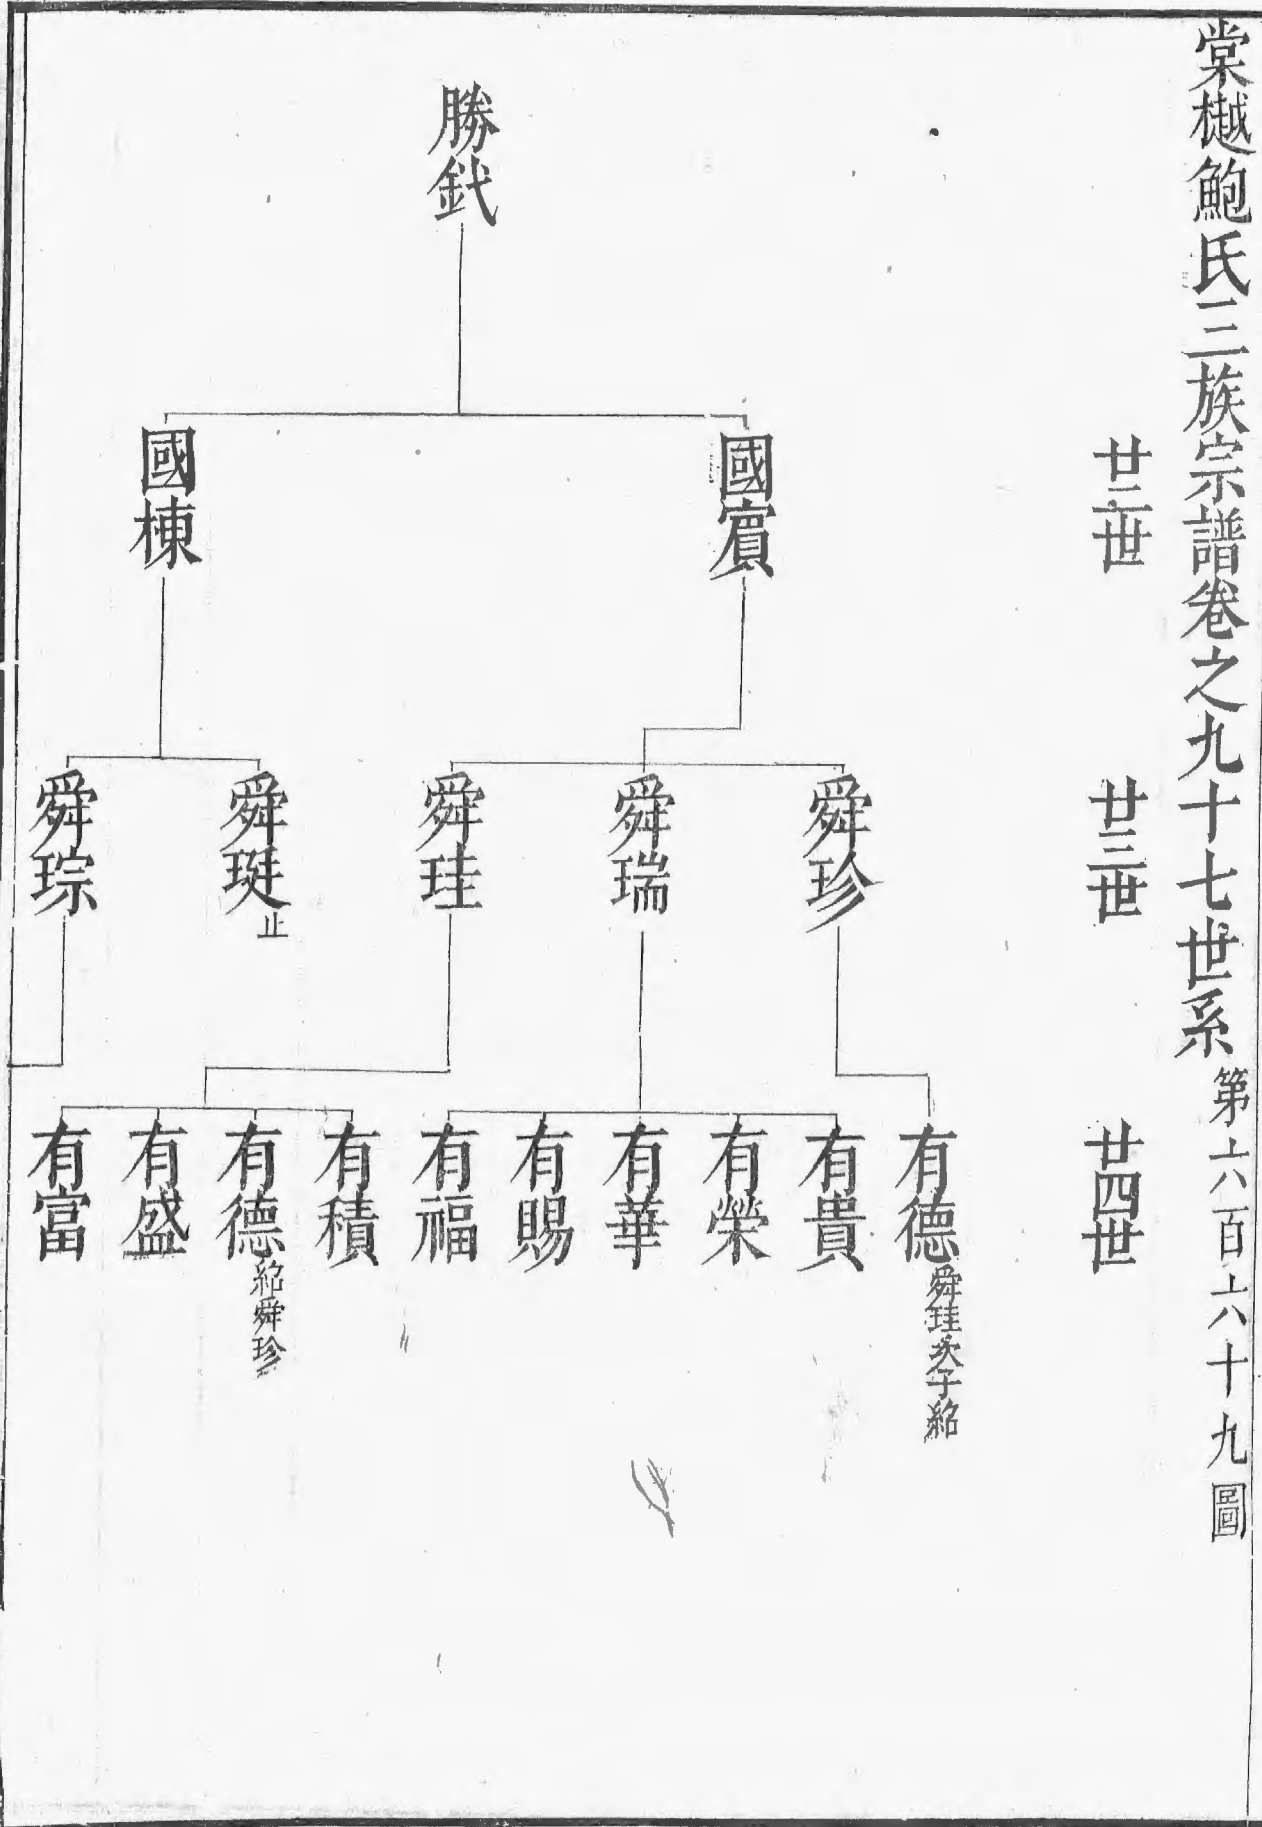 棠樾鮑氏三族宗譜卷之九十七世系 第六百六十九圖
廿二世
廿三世
廿四世
勝釴
國賔
國棟
舜珍
舜瑞
舜珪
舜珽止
舜琮
有德舜珪次子紹
有貴
有榮
有華
有賜
有福
有積
有德紹舜珍
有盛
有富